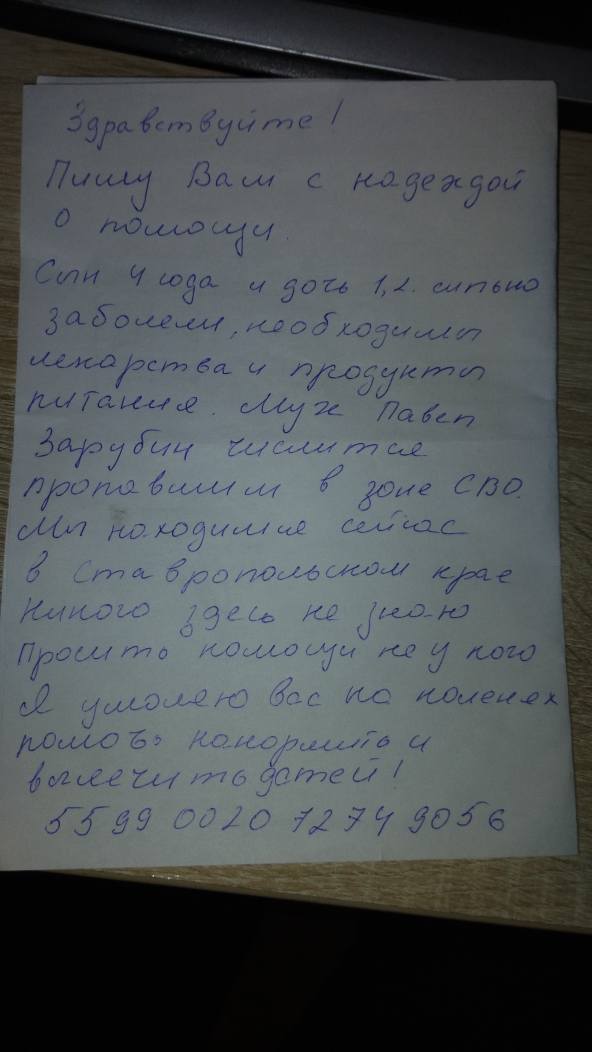 Здравствуйте!
Пишу Вам с надеждой
о помощи.
Сын 4 года и дочь 1,2. сильно
заболели, необходимы
лекарства и продукты
питания. Муж Павел
Зарубин числится
пропавшим в зоне СВО.
Мы находимся сейчас
в Ставропольском крае
Никого здесь не знаю
Просить помощи не у кого
Я умоляю вас на коленях
помочь накормить и
вылечить детей!
5599 0020 7274 9056